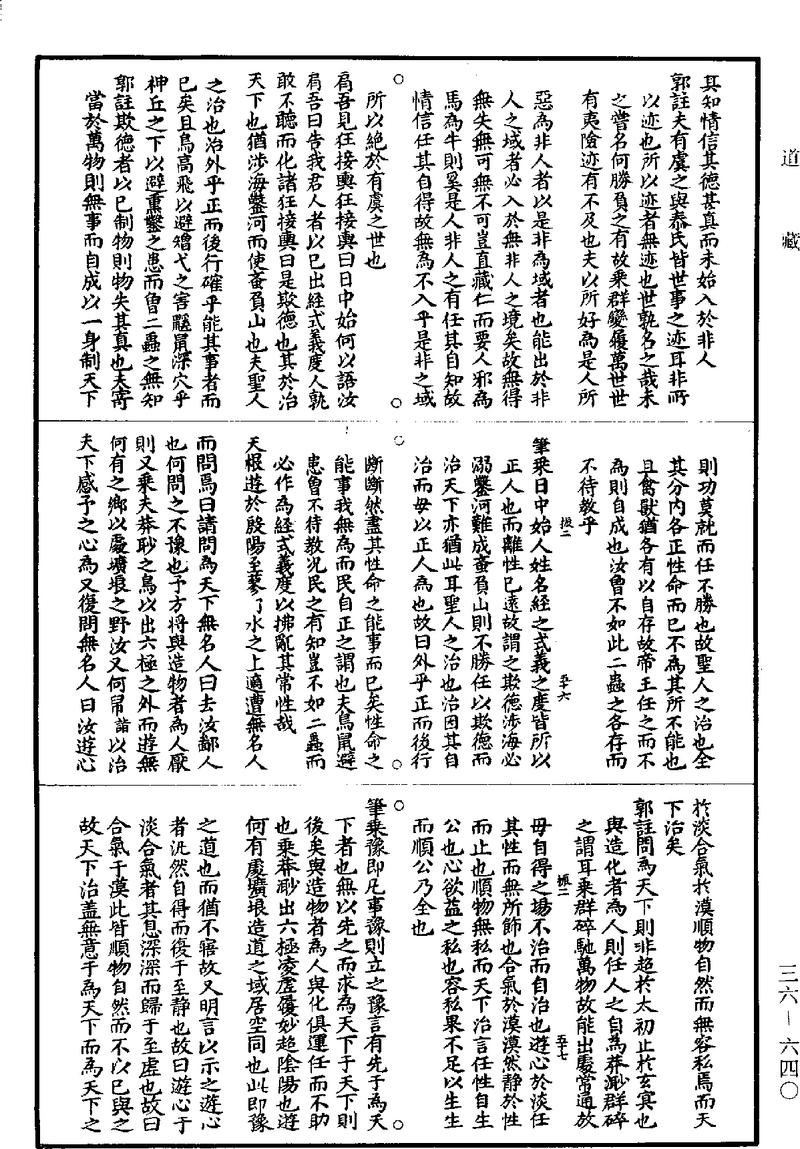 道藏
其知情信其德甚真而未始入於非人
郭註夫有虞之與泰氏皆世事之迹耳非所
以迹也所以迹者無迹也世孰名之哉未
之嘗名何勝負之有故乗群變履萬世世
有夷險迹有不及也夫以所好為是人所
惡為非人者以是非為域者也能出於非
人之域者必入於無非人之境矣故無得
無失無可無不可豈直藏仁而要人邪為
馬為牛則奚是人非人之有任其自知故
情信任其自得故無為不入乎是非之域
所以絶於有虞之世也
肩吾見狂接輿狂接輿曰日中始何以語汝
肩吾曰告我君人者以已出經式義度人孰
敢不聽而化諸狂接輿曰是欺德也其於治
天下也猶涉海鑿河而使蚉負山也夫聖人
之治也治外乎正而後行確乎能其事者而
已矣且鳥高飛以避矰弋之害鼷鼠深穴乎
神丘之下以避熏鑿之患而曾二蟲之無知
郭註欺德者以已制物則物失其真也夫寄
當於萬物則無事而自成以一身制天下
則功莫就而任不勝也故聖人之治也全
其分内各正性命而已不為其所不能也
且禽獸猶各有以自存故帝王任之而不
為則自成也汝曾不如此二蟲之各存而
不待教乎
筆乗日中始人姓名經之式義之度皆所以
正人也而離性已遠故謂之欺德涉海必
溺鑿河難成蚉負山則不勝任以欺德而
治天下亦猶此耳聖人之治也治因其自
治而毋以正人為也故曰外乎正而後行
斷斷然盡其性命之能事而已矣性命之
能事我無為而民自正之謂也夫鳥鼠避
患曾不待教况民之有知豈不如二蟲而
必作為經式義度以拂亂其常性哉
天根遊於殷陽至蓼了水之上適遭無名人
而問焉曰請問為天下無名人曰去汝鄙人
也何問之不豫也予方將與造物者為人厭
則又乗夫莽眇之鳥以出六極之外而遊無
何有之鄉以處壙埌之野汝又何帠詣以治
天下感予之心為又復問無名人曰汝遊心
於淡合氣於漠順物自然而無容私焉而天
下治矣
郭註問為天下則非超於太初止於玄㝠也
與造化者為人則任人之自為莽眇群碎
之謂耳乗群碎馳萬物故能出處常通放
毋自得之場不治而自治也遊心於淡任
其性而無所飾也合氣於漠漠然靜於性
而止也順物無私而天下治言任性自生
公也心欲益之私也容私果不足以生生
而順公乃全也
筆乗豫即凡事豫則立之豫言有先于為天
下者也無以先之而求為天下于天下則
後矣與造物者為人與化俱運任而不助
也乗莽眇出六極凌虛履妙超隂陽也遊
何有處壙埌造道之域居空同也此即豫
之道也而猶不寤故又明言以示之遊心
者汎然自得而復于至静也故曰遊心于
淡合氣者其息深深而歸于至虛也故曰
合氣于漠此皆順物自然而不以已與之
故天下治盖無意于為天下而為天下之
振二
五十六
振二
五十七
三六—六四〇